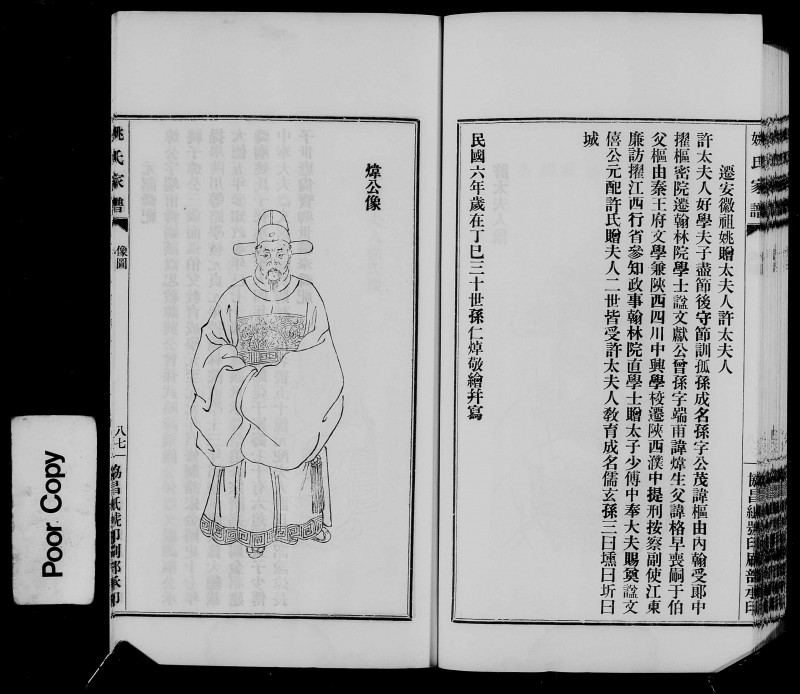 遷安徽祖姚贈太夫人許太夫人
許太夫人好學夫子盡節後守節訓孤孫成名孫字公茂諱樞由內翰受郞中
擢樞密院遷翰林院學士諡文獻公曾孫字端甫諱煒生父諱格早喪嗣于伯
父樞由秦王府文學兼陝西四川中興學校遷陝西漢中提刑按察副使江東
廉訪擢江西行省參知政事翰林院直學士贈太子少傅中奉大夫賜奠諡文
僖公元配許氏贈夫人二世皆受許太夫人敎育成名儒玄孫三曰壎曰圻曰
城
民國六年歲在丁巳三十世孫仁焯敬繪幷寫
姚氏家譜
煒公像
姚氏家譜
像圖
八七
協昌紙號印刷部承印
Poor Copy